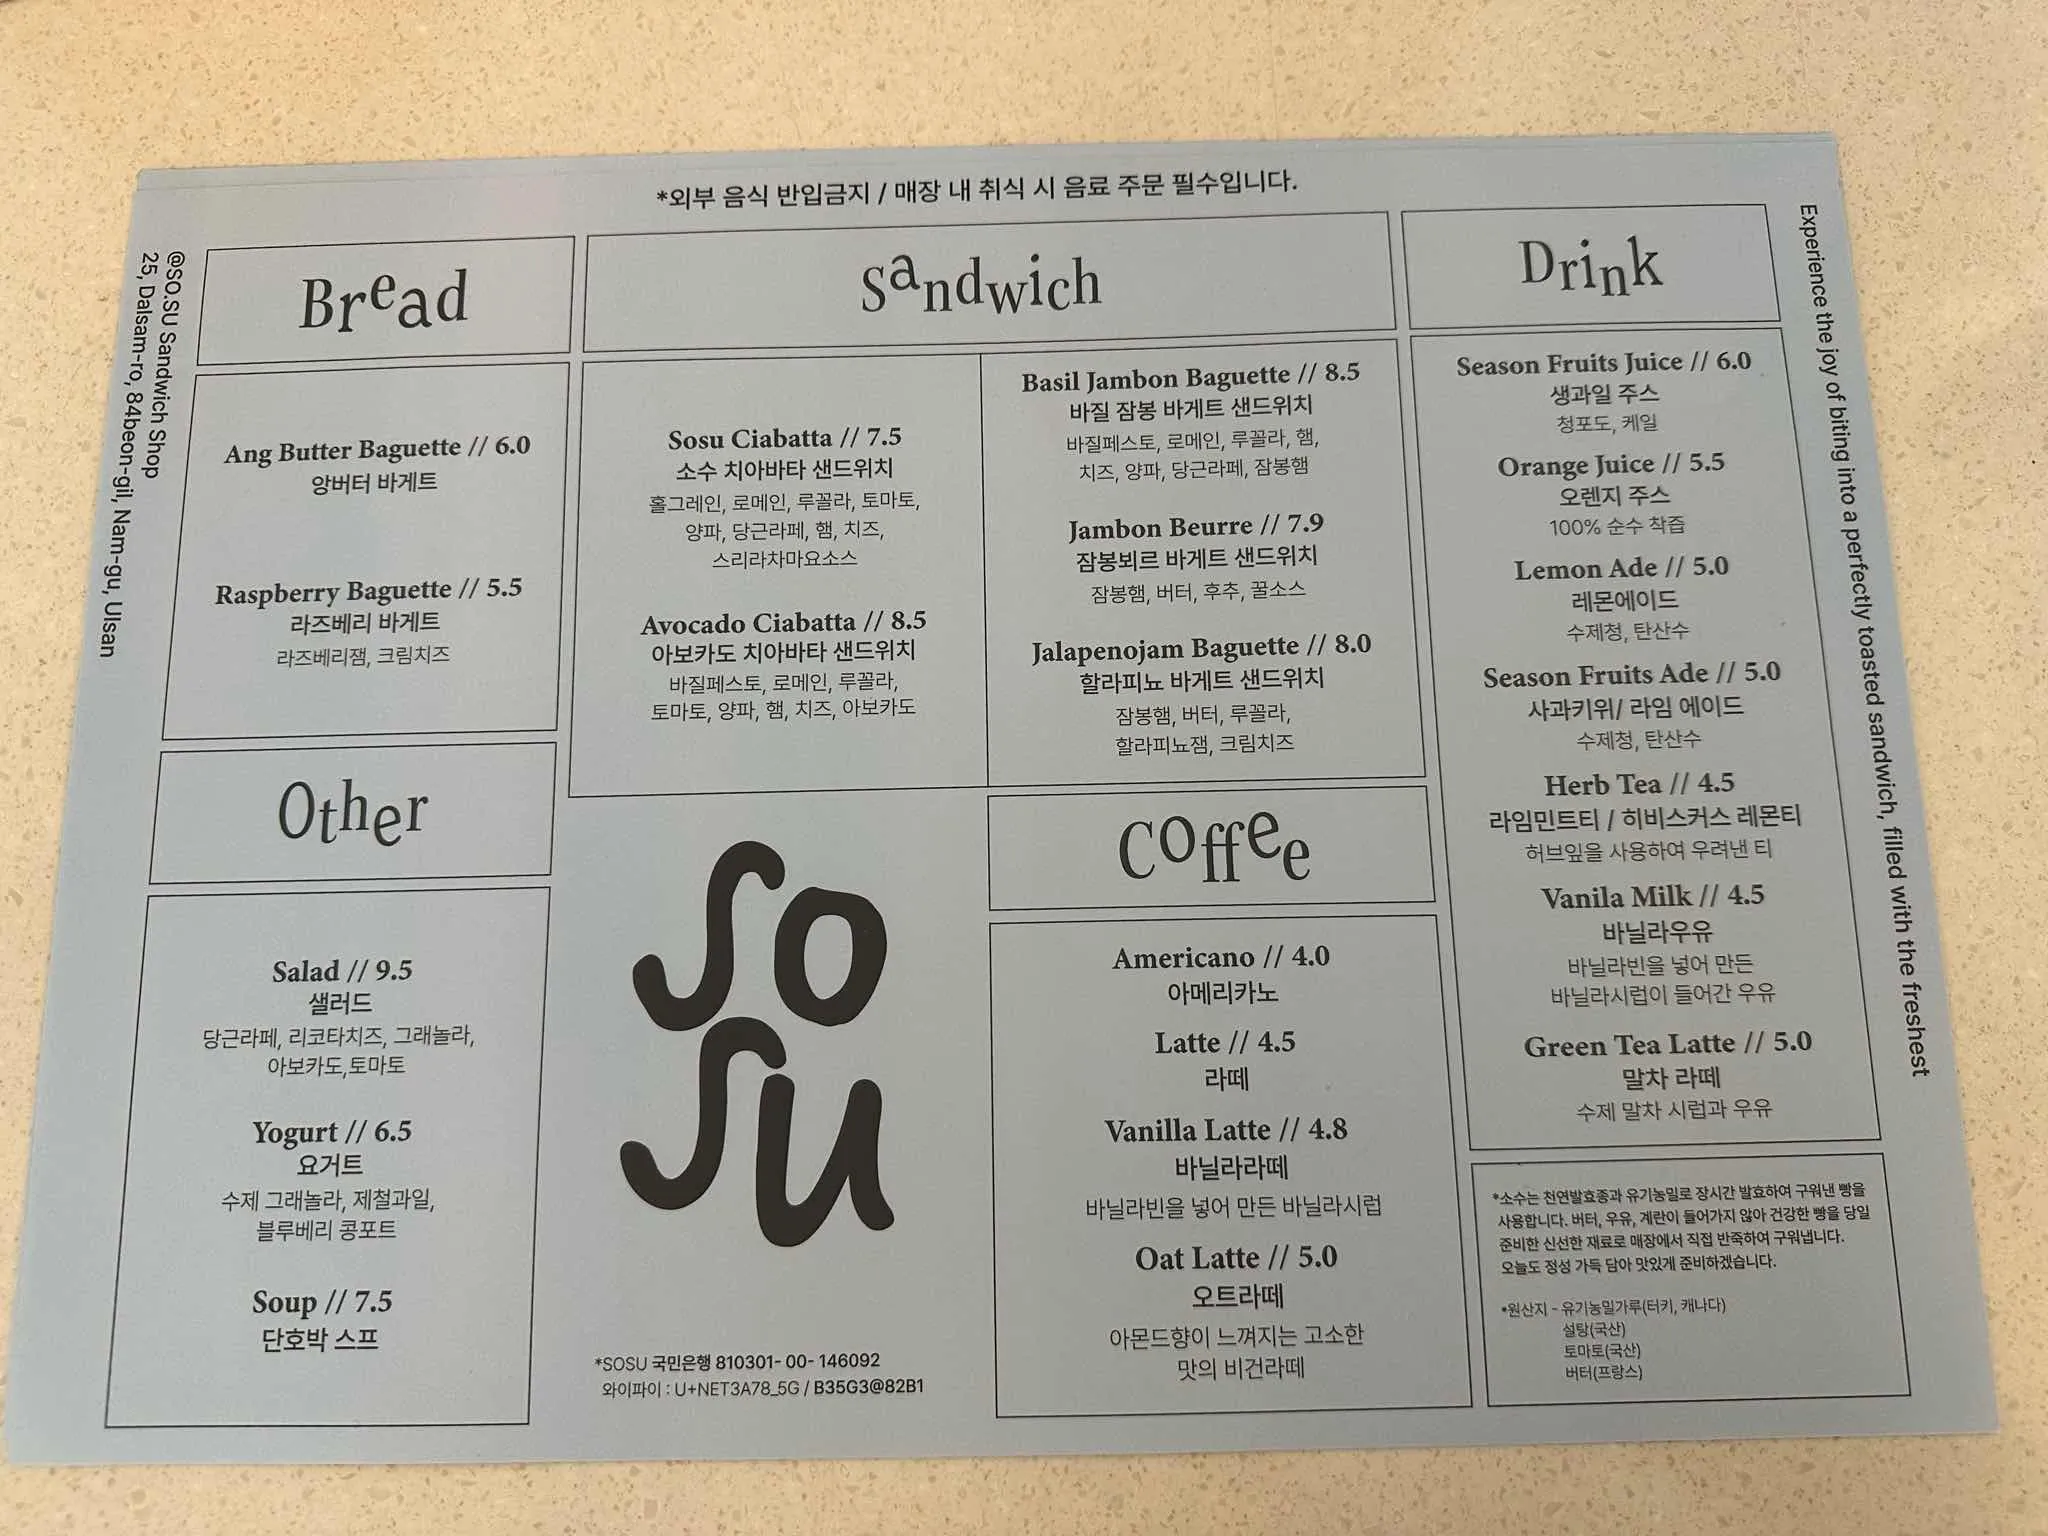 *외부 음식 반입금지 / 매장 내 취식 시 음료 주문 필수입니다.
@SO.SU Sandwich Shop
25, Dalsam-ro, 84beon-gil, Nam-gu, Ulsan
Bread
Ang Butter Baguette // 6.0
앙버터 바게트
Raspberry Baguette // 5.5
라즈베리 바게트
라즈베리잼, 크림치즈
Other
Salad // 9.5
샐러드
당근라페, 리코타치즈, 그래놀라,
아보카도,토마토
Yogurt // 6.5
요거트
수제 그래놀라, 제철과일,
블루베리 콩포트
Soup // 7.5
단호박 스프
Sandwich
Sosu Ciabatta // 7.5
소수 치아바타 샌드위치
홀그레인, 로메인, 루꼴라, 토마토,
양파, 당근라페, 햄, 치즈,
스리라차마요소스
Avocado Ciabatta // 8.5
아보카도 치아바타 샌드위치
바질페스토, 로메인, 루꼴라,
토마토, 양파, 햄, 치즈, 아보카도
Basil Jambon Baguette // 8.5
바질 잠봉 바게트 샌드위치
바질페스토, 로메인, 루꼴라, 햄,
치즈, 양파, 당근라페, 잠봉햄
Jambon Beurre // 7.9
잠봉뵈르 바게트 샌드위치
잠봉햄, 버터, 후추, 꿀소스
Jalapenojam Baguette // 8.0
할라피뇨 바게트 샌드위치
잠봉햄, 버터, 루꼴라,
할라피뇨잼, 크림치즈
SO
SU
*SOSU 국민은행 810301- 00- 146092
와이파이 : U+NET3A78_5G / B35G3@82B1
Coffee
Americano // 4.0
아메리카노
Latte // 4.5
라떼
Vanilla Latte // 4.8
바닐라라떼
바닐라빈을 넣어 만든 바닐라시럽
Oat Latte // 5.0
오트라떼
아몬드향이 느껴지는 고소한
맛의 비건라떼
Drink
Season Fruits Juice // 6.0
생과일 주스
청포도, 케일
Orange Juice // 5.5
오렌지 주스
100% 순수 착즙
Lemon Ade // 5.0
레몬에이드
수제청, 탄산수
Season Fruits Ade // 5.0
사과키위/ 라임 에이드
수제청, 탄산수
Herb Tea // 4.5
라임민트티 / 히비스커스 레몬티
허브잎을 사용하여 우려낸 티
Vanila Milk // 4.5
바닐라우유
바닐라빈을 넣어 만든
바닐라시럽이 들어간 우유
Green Tea Latte // 5.0
말차 라떼
수제 말차 시럽과 우유
*소수는 천연발효종과 유기농밀로 장시간 발효하여 구워낸 빵을
사용합니다. 버터, 우유, 계란이 들어가지 않아 건강한 빵을 당일
준비한 신선한 재료로 매장에서 직접 반죽하여 구워냅니다.
오늘도 정성 가득 담아 맛있게 준비하겠습니다.
*원산지 - 유기농밀가루(터키, 캐나다)
설탕(국산)
토마토(국산)
버터(프랑스)
Experience the joy of biting into a perfectly toasted sandwich, filled with the freshest